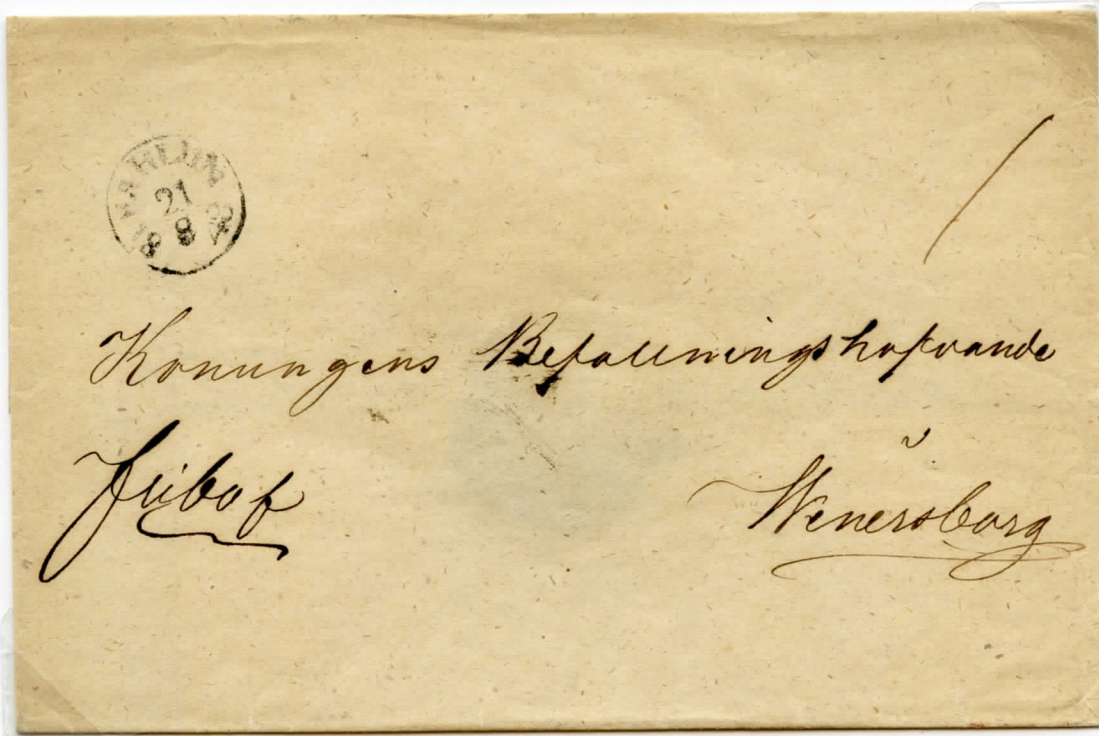 21
8
Konungens Befallningshafvande
Fribref
Wenersborg